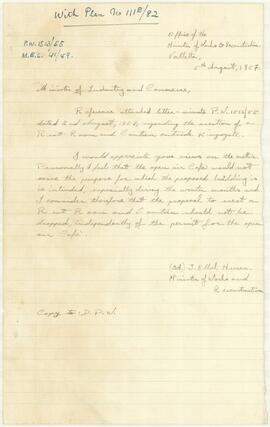 With Plan No 111E/82
P.W. 1513/55
M.E.C. 41/59.
Office of the
Minister of Works & Reconstruction
Valletta,
5th August, 1957.
Minister of Industry and Commerce,
Reference attached letter-minute P.W. 1513/55
dated 2nd August, 1957, regarding the erection of a
Rest Room and Canteen outside Kingsgate.
I would appreciate your views on the matter.
Personally I feel that the open air Café would not
serve the purpose for which the proposed building is
intended, especially during the winter months and
I consider therefore that the proposal to erect a
Rest Room and Canteen should not be
dropped, independently of the permit for the open
air Café.
(Sd)
Minister of Works and
Reconstruction
Copy to: D.P.W.